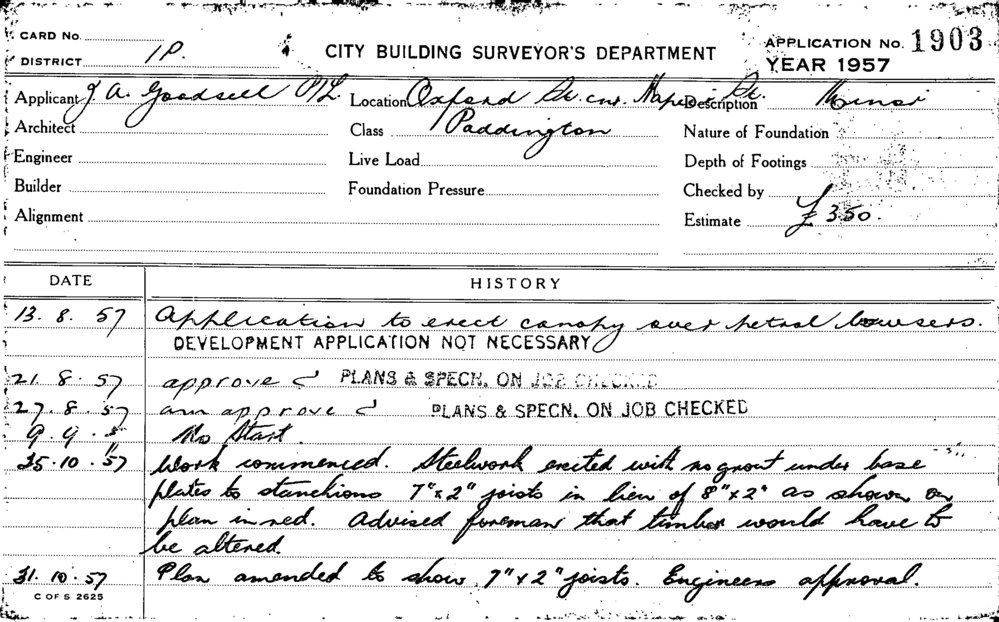 CARD No.
DISTRICT 1P.
CITY BUILDING SURVEYOR'S DEPARTMENT
APPLICATION No. 1903
YEAR 1957
Applicant J. A. Goodsell P/L. Location Oxford St. cnr. Napier St. Description Minor
Architect Class Paddington Nature of Foundation
Engineer Live Load Depth of Footings
Builder Foundation Pressure Checked by
Alignment Estimate £350.
DATE HISTORY
13. 8. 57 Application to erect canopy over petrol bowsers.
DEVELOPMENT APPLICATION NOT NECESSARY
21. 8. 57 approve PLANS & SPECN. ON JOB CHECKED
27. 8. 57 approve PLANS & SPECN. ON JOB CHECKED
9. 9. No Start.
25. 10. 57 Work commenced. Steelwork erected with no grout under base
plates to stanchions 7"x2" joists in lieu of 8"x2" as shown on
plan in red. Advised foreman that timber would have to
be altered.
31. 10. 57 Plan amended to show 7"x2" joists. Engineers approval.
C OF S 2625